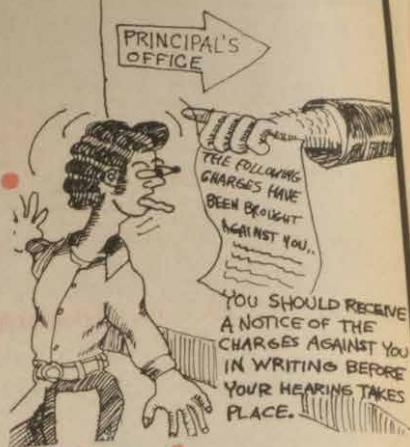 PRINCIPAL'S
OFFICE
THE FOLLOWING
CHARGES HAVE
BEEN BROUGHT
AGAINST YOU..
YOU SHOULD RECEIVE
A NOTICE OF THE
CHARGES AGAINST YOU
IN WRITING BEFORE
YOUR HEARING TAKES
PLACE.